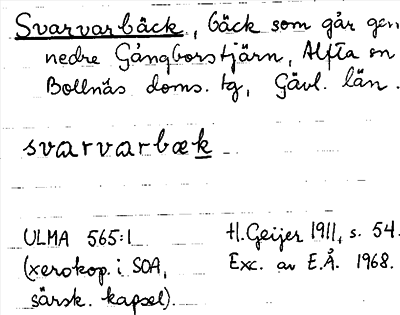 Svarvarbäck, bäck som går gen
nedre Gångborstjärn, Alfta sn
Bollnäs doms. tg, Gävl. län.
svarvarbæk
ULMA 565:1
(xerokop. i SOA,
särsk. kapsel).
H. Geijer 1911, s. 54.
Exc. av E.Å. 1968.